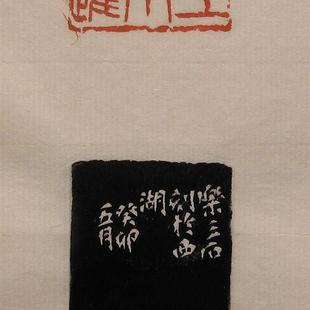 樂三石
刻於西
湖
癸卯
五月